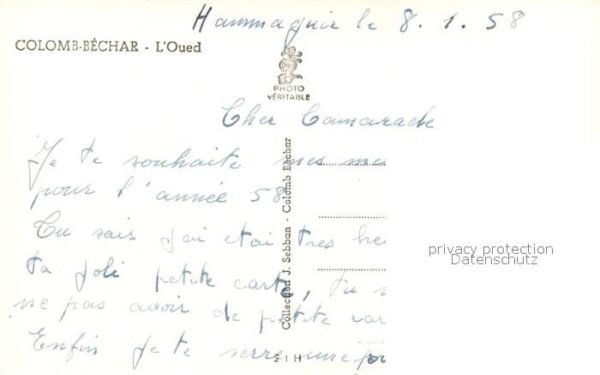 Hammaguir le 8.1.58
COLOMB-BÉCHAR - L'Oued
PHOTO
VÉRITABLE
Cher Camarade
Je te souhaite mes mei
pour l'année 58
Tu sais j'ai etai tres he
ta joli petite carte, tu
ne pas avoir de petite car
Enfin je te serre une
Collection J. Sebban - Colomb Béchar
21H
privacy protection
Datenschutz